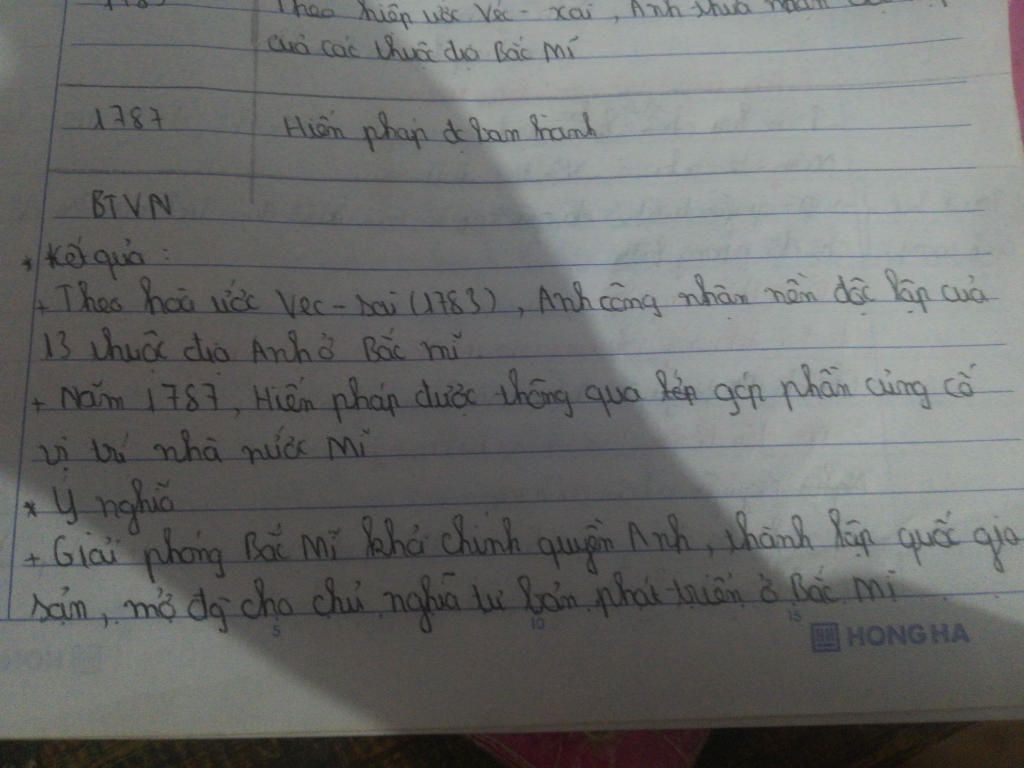 Theo hiệp ước Véc - xai, Anh thừa nhận
của các thuộc địa Bắc Mĩ
1787 Hiến pháp đc ban hành
BTVN
* Kết quả :
+ Theo hoà ước Vec - xai (1783), Anh công nhận nền độc lập của
13 thuộc địa Anh ở Bắc mĩ
+ Năm 1787, Hiến pháp được thông qua góp phần củng cố
vị trí nhà nước Mĩ
* Ý nghĩa
+ Giải phóng Bắc Mĩ khỏi chính quyền Anh, thành lập quốc gia
sản, mở đg cho chủ nghĩa tư bản phát triển ở Bắc Mĩ
5 10 15
HONG HA